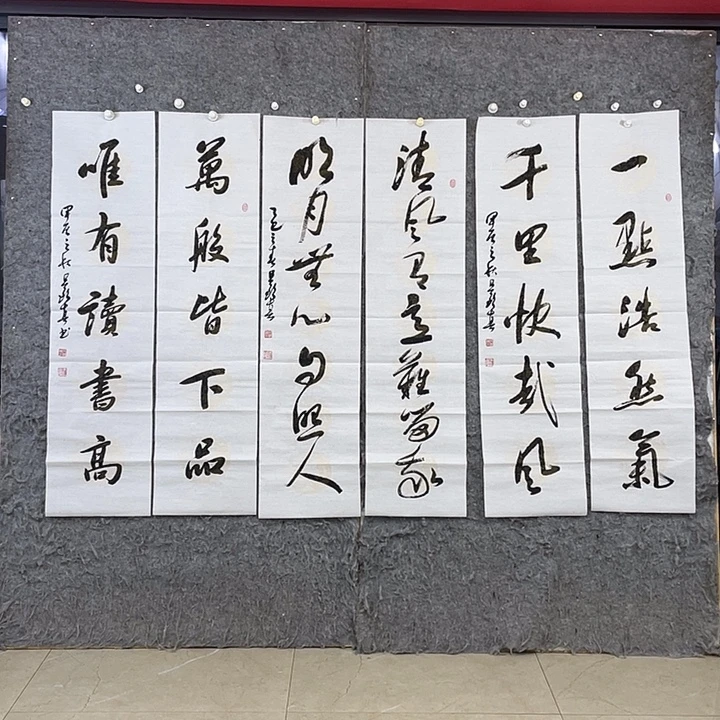 一點浩然氣
千里快哉風
甲辰之秋
清風有意難留我
明月無心自照人
乙巳之春
萬般皆下品
唯有讀書高
甲辰之秋